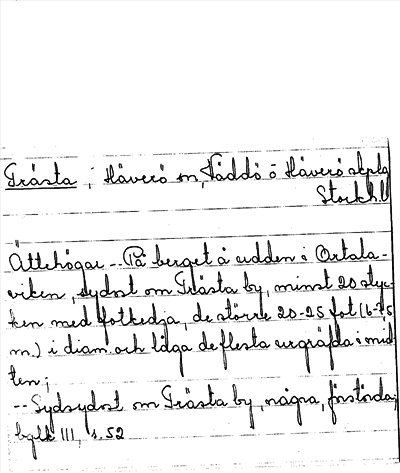 Trästa, i Häverö sn, Väddö o Häverö skplg
Stockh.l
Ättehögar -- På berget å udden i Ortala-
viken, sydost om Trästa by, minst 20 styc-
ken med fotkedja, de större 20-25 fot (6-7,5
m.) i diam. och låga de flesta urgräfda i mid-
ten;
-- Sydsydost om Trästa by, några, förstörda;
bglk III, s. 52